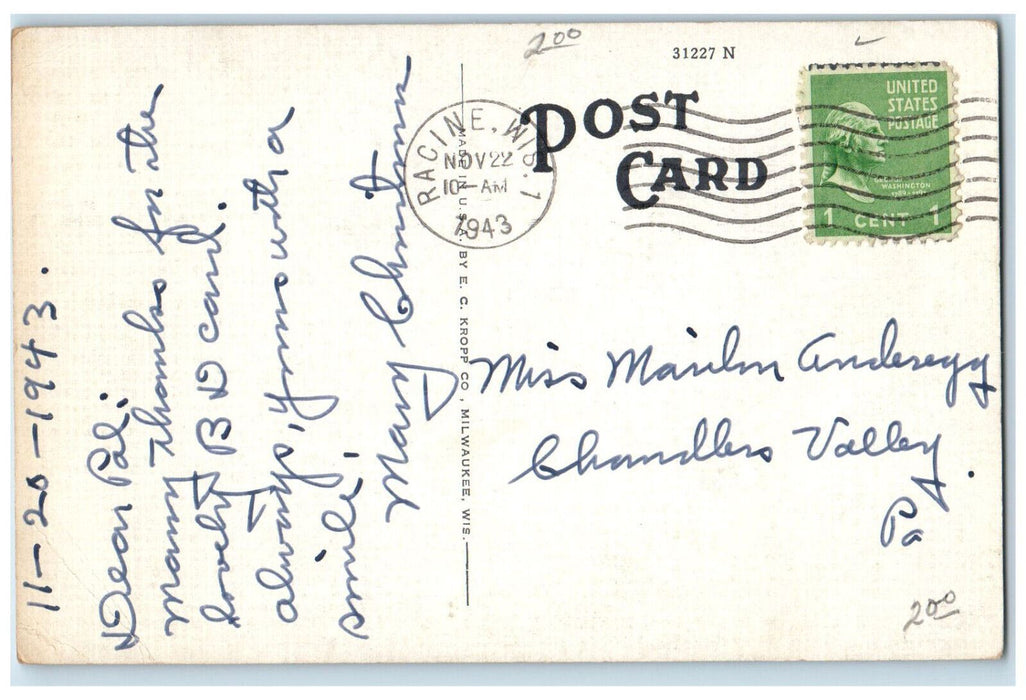 11-20-1943.
Dear Pal:
Many thanks for the
lovely B D card.
always, yours with a
smile,
Mary
MADE IN U.S.A. BY E. C. KROPP CO., MILWAUKEE, WIS.
200
31227 N
POST
CARD
RACINE, WIS. 1
NOV 22
10 AM
1943
UNITED
STATES
POSTAGE
WASHINGTON
1 CENT 1
Miss Marilyn Anderegg
Chandlers Valley
Pa.
200